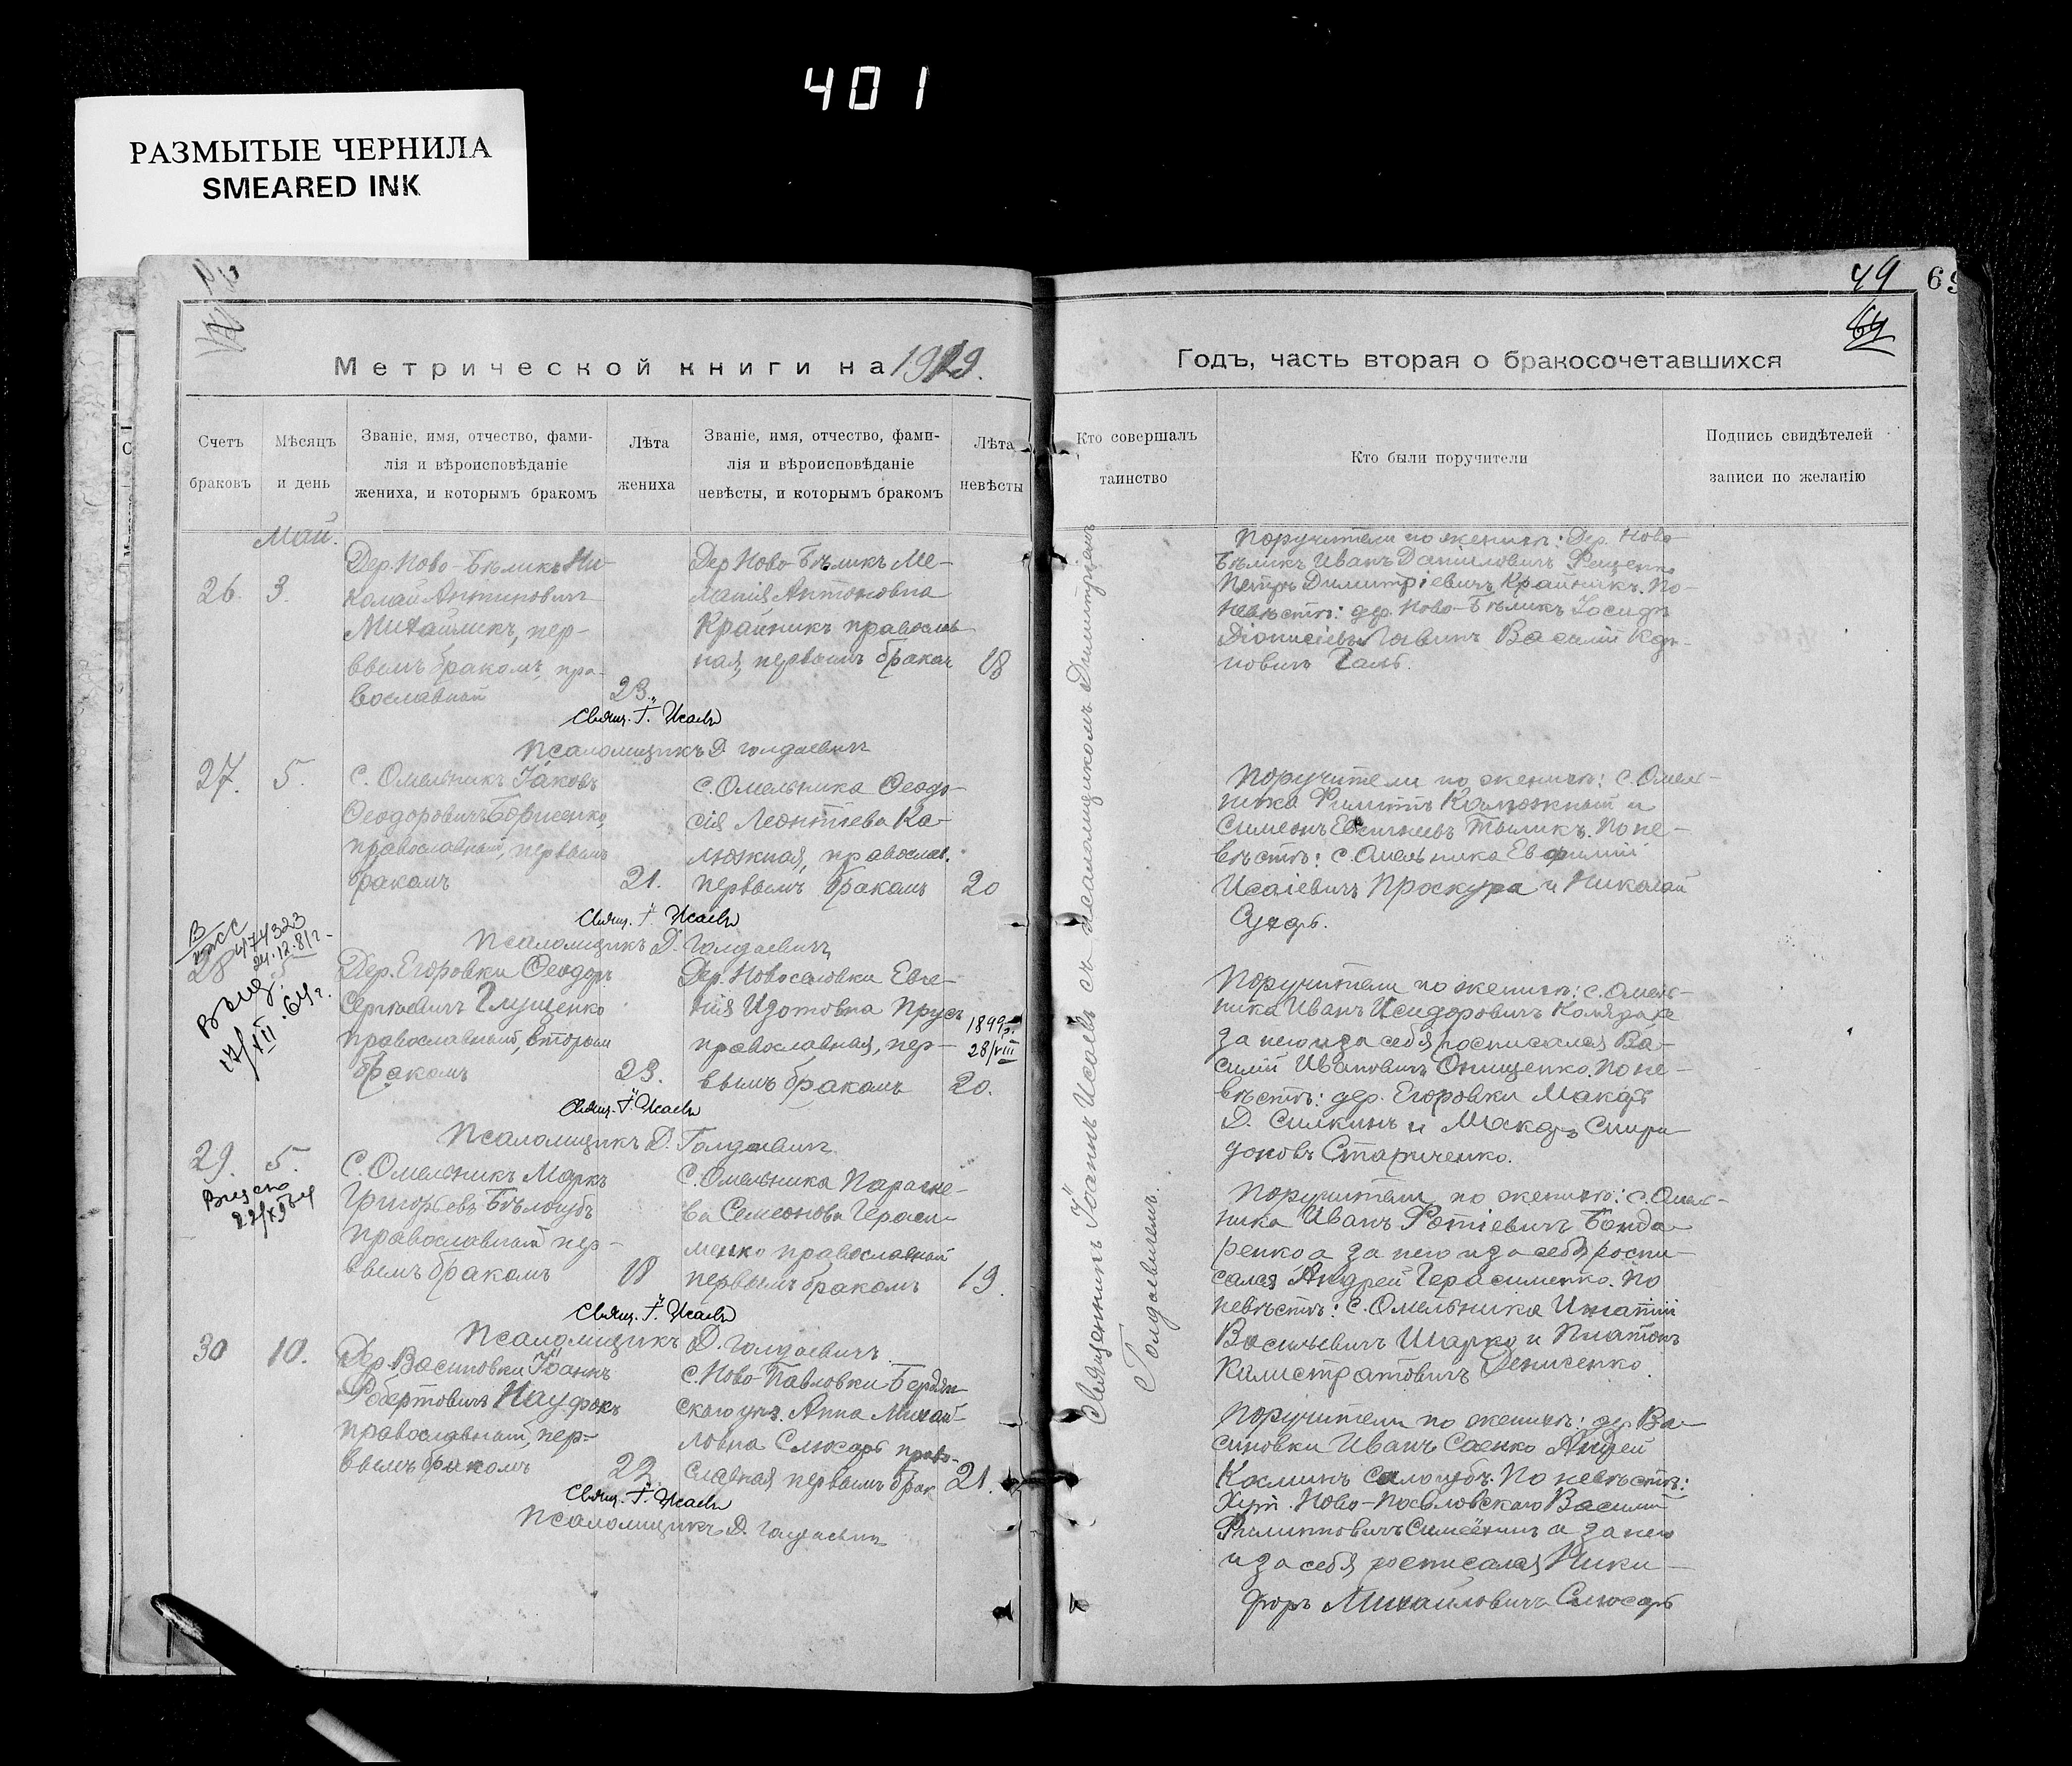 401
РАЗМЫТЫЕ ЧЕРНИЛА
SMEARED INK
49
69
64
Метрической книги на 1919.
Годъ, часть вторая о бракосочетавшихся
Счетъ браковъ
Мѣсяцъ и день
Званіе, имя, отчество, фами-
лія и вѣроисповѣданіе
жениха, и которымъ бракомъ
Лѣта жениха
Званіе, имя, отчество, фами-
лія и вѣроисповѣданіе
невѣсты, и которымъ бракомъ
Лѣта невѣсты
Кто совершалъ таинство
Кто были поручители
Подпись свидѣтелей
записи по желанію
Май.
26. 3.
Дер. Ново-Бѣликъ Ни-
колай Антиповичъ
Михайликъ, пер-
вымъ бракомъ, пра-
вославный
23.
Дер Ново Бѣликъ Ме-
ланія Антоновна
Крайникъ православ
ная, первымъ бракам
18
Поручители по женихѣ: Дер. Ново
Бѣликъ Иванъ Даніиловичъ
Петръ Димитріевичъ Крайникъ. По
невѣстѣ: дер. Ново-Бѣликъ
Василій Кар-
повичъ
Свящ. І. Исаевъ
Псаломщикъ Д. Голдаевичъ
27. 5.
С. Омельникъ Іаковъ
Ѳеодоровичъ Борисенко,
православный, первымъ
бракомъ
21.
С. Омельника Ѳеодо
сія Леонтіева Ка-
люжная, православ.
первымъ бракамъ
20
Поручители по женихѣ: с. Омель-
ника Филиппъ Калюжный и
Симеонъ
По не-
вѣстѣ: с. Омельника Евфимій
Исаіевичъ Проскура и Николай
Свящ. І. Исаевъ
Псаломщикъ Д. Голдаевичъ
28 5
474323
24.12.81г.
17/XII.64г.
Дер. Егоровки Ѳеодоръ
Сергѣевичъ Глущенко
православный, вторым
бракомъ
23.
Дер. Новоселовки Евге-
нія Изотовна Прусъ
православная, пер-
вымъ бракамъ
20.
1899г.
28/VIII
Поручители по женихѣ: с. Омель-
ника Иванъ Исидоровичъ
за него и за себя росписался Ва-
силій Ивановичъ Онищенко. По не-
вѣстѣ: дер. Егоровки Макаръ
Д. Силкинъ и Макаръ Спири
доновъ Стариченко.
Свящ. І. Исаевъ
Псаломщикъ Д. Голдаевичъ
29. 5.
С. Омельникъ Маркъ
Григорьевъ Бѣлогубъ
православный пер-
вымъ бракомъ
18
С. Омельника Параске-
ва Семеонова Гераси-
менко православный
первымъ бракомъ
19.
Поручители по женихѣ: с. Омель-
ника Иванъ Фотіевичъ Бонда-
ренко а за него и за себя роспи-
сался Андрей Герасименко. По
невѣстѣ: С. Омельника Игнатій
Васильевичъ Шарко и Платонъ
Калистратовичъ Денисенко
Свящ. І. Исаевъ
Псаломщикъ Д. Голдаевичъ
30 10.
Дер. Васиновки Іоаннъ
Робертовичъ
православный, пер-
вымъ бракомъ
22.
с. Ново-Павловки Бердян
скаго уѣз. Анна Михай-
ловна Слюсарь право-
славная первымъ брак
21.
Поручители по женихѣ: де. Ва-
синовки Иванъ Саенко Андрей
Косминъ Салогубъ. По невѣстѣ:
Хут. Ново-Павловскаго Василій
Филипповичъ а за него
и за себя росписался Ники-
форъ Михайловичъ Слюсарь
Свящ. І. Исаевъ
Псаломщикъ Д. Голдаевичъ
Священникъ Іоаннъ Исаевъ съ псаломщикомъ Димитріемъ
Голдаевичемъ.